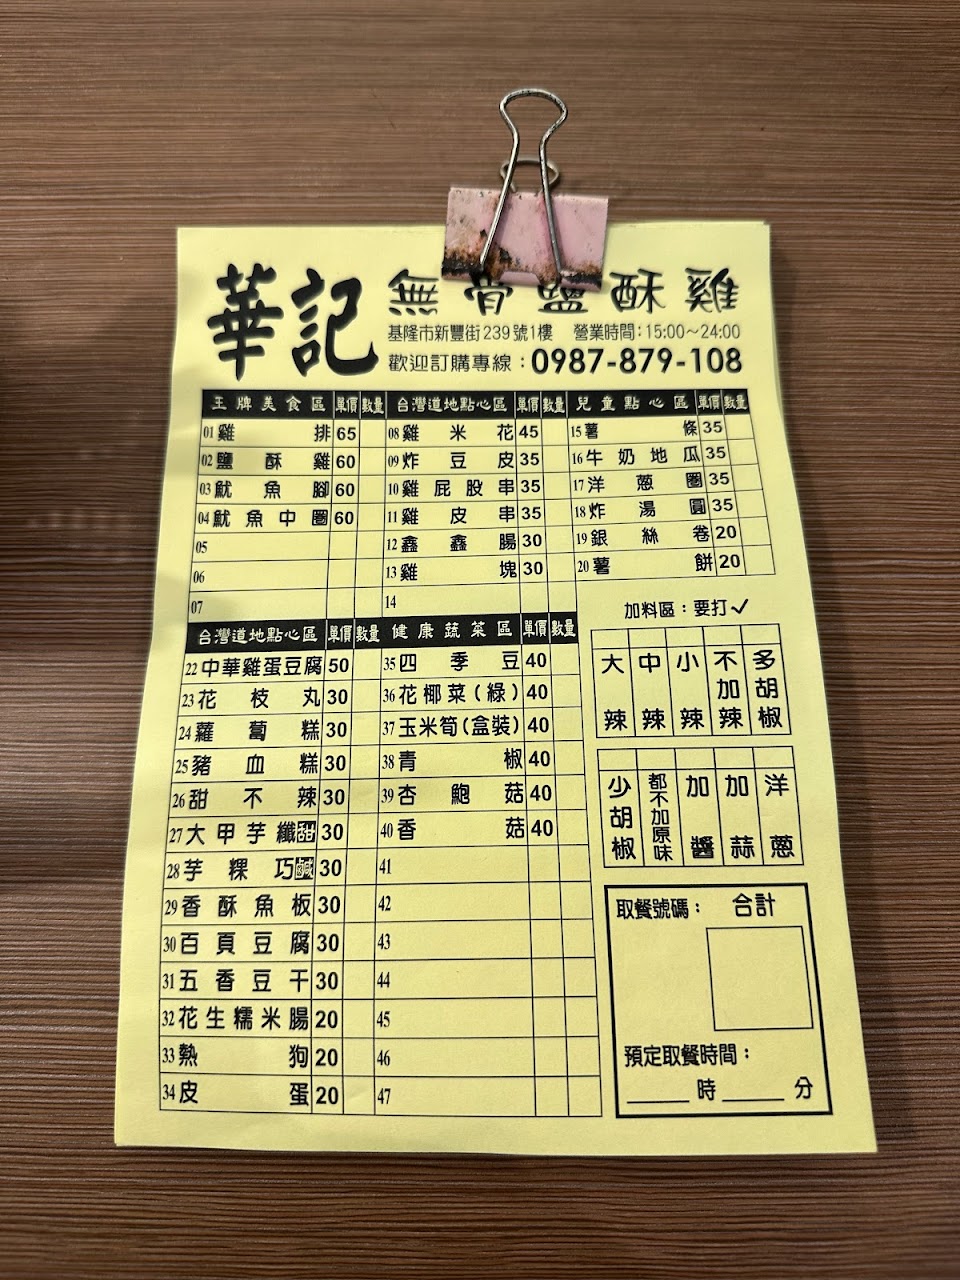 華記 無骨鹽酥雞
基隆市新豐街239號1樓 營業時間:15:00~24:00
歡迎訂購專線:0987-879-108
王牌美食區 單價 數量
01 雞排 65
02 鹽酥雞 60
03 魷魚腳 60
04 魷魚中圈 60
05
06
07
台灣道地點心區 單價 數量
08 雞米花 45
09 炸豆皮 35
10 雞屁股串 35
11 雞皮串 35
12 鑫鑫腸 30
13 雞塊 30
14
兒童點心區 單價 數量
15 薯條 35
16 牛奶地瓜 35
17 洋蔥圈 35
18 炸湯圓 35
19 銀絲卷 20
20 薯餅 20
台灣道地點心區 單價 數量
22 中華雞蛋豆腐 50
23 花枝丸 30
24 蘿蔔糕 30
25 豬血糕 30
26 甜不辣 30
27 大甲芋纖甜 30
28 芋粿巧鹹 30
29 香酥魚板 30
30 百頁豆腐 30
31 五香豆干 30
32 花生糯米腸 20
33 熱狗 20
34 皮蛋 20
健康蔬菜區 單價 數量
35 四季豆 40
36 花椰菜(綠) 40
37 玉米筍(盒裝) 40
38 青椒 40
39 杏鮑菇 40
40 香菇 40
41
42
43
44
45
46
47
加料區:要打✓
大辣 中辣 小辣 不加辣 多胡椒
少胡椒 都不加原味 加醬 加蒜 洋蔥
取餐號碼: 合計
預定取餐時間:
____時____分